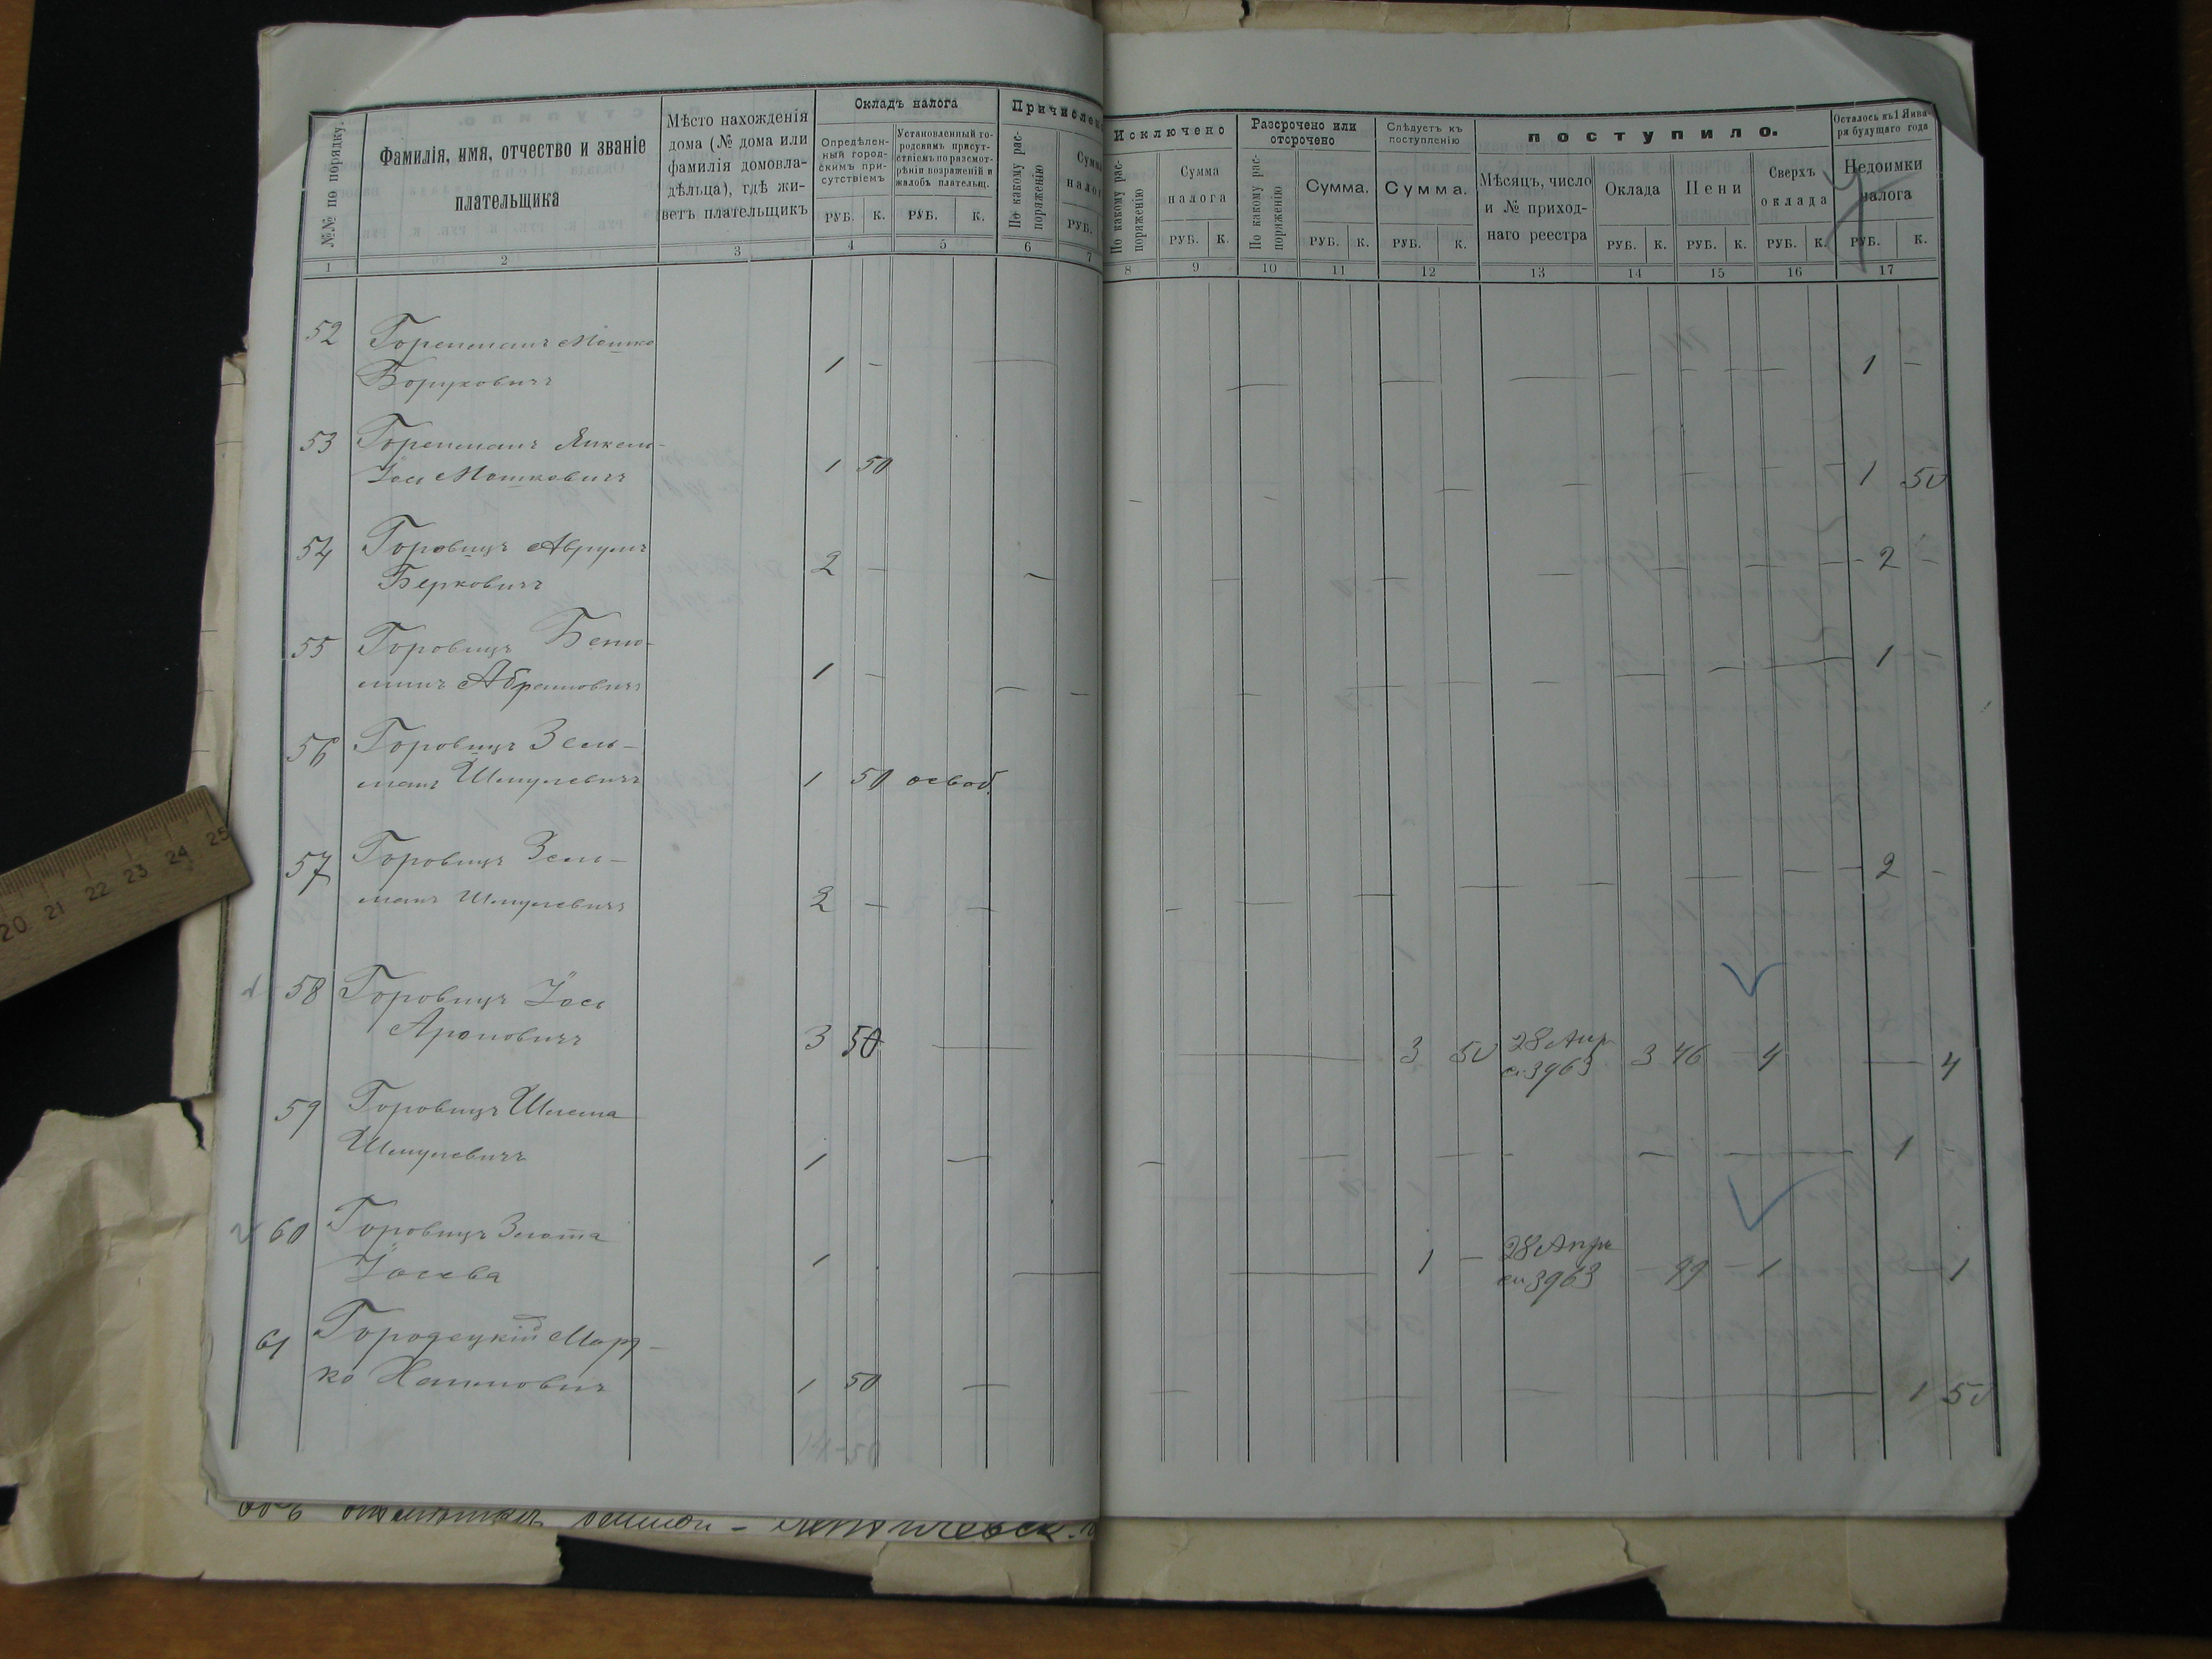 №№ по порядку.
Фамилія, имя, отчество и званіе
плательщика
Мѣсто нахожденія
дома (№ дома или
фамилія домовла-
дѣльца), гдѣ жи-
ветъ плательщикъ
Окладъ налога
Опредѣлен-
ный город-
скимъ при-
сутствіемъ
Установленный го-
родскимъ присут-
ствіемъ по разсмот-
рѣніи возраженій и
жалобъ плательщ.
РУБ. К. РУБ. К.
Причислено
По какому рас-
поряженію
Сумма
налога
РУБ.
Исключено
По какому рас-
поряженію
Сумма
налога
РУБ. К.
Разсрочено или
отсрочено
По какому рас-
поряженію
Сумма.
РУБ. К.
Слѣдуетъ къ
поступленію
Сумма.
РУБ. К.
поступило.
Мѣсяцъ, число
и № приход-
наго реестра
Оклада
РУБ. К.
Пени
РУБ. К.
Сверхъ
оклада
РУБ. К.
Осталось къ 1 Янва-
ря будущаго года
Недоимки
налога
РУБ. К.
1 2 3 4 5 6 7 8 9 10 11 12 13 14 15 16 17
52 Горенштейнъ Мошко
Боруховичъ 1 — 1 —
53 Янкель
Іось Мошковичъ 1 50 1 50
54 Горовицъ Аврумъ
Берковичъ 2 — 2 —
55 Горовицъ Беню-
минъ Абрамовичъ 1 — 1 —
56 Горовицъ Зель-
манъ Шмулевичъ 1 50 освоб.
57 Горовицъ Зель-
манъ Шмулевичъ 2 — 2 —
58 Горовицъ Іось
Ароновичъ 3 50 3 50 28 Апр. 3 46 — 4 — 4
ст 3963
59 Горовицъ Шлема
Шмулевичъ 1 1
60 Горовицъ Злата
Іосева 1 1 — 28 Апр. — 99 — 1 — 1
ст 3963
61 Городецкій Морд-
ко Хаимовичъ 1 50 1 50
14-50